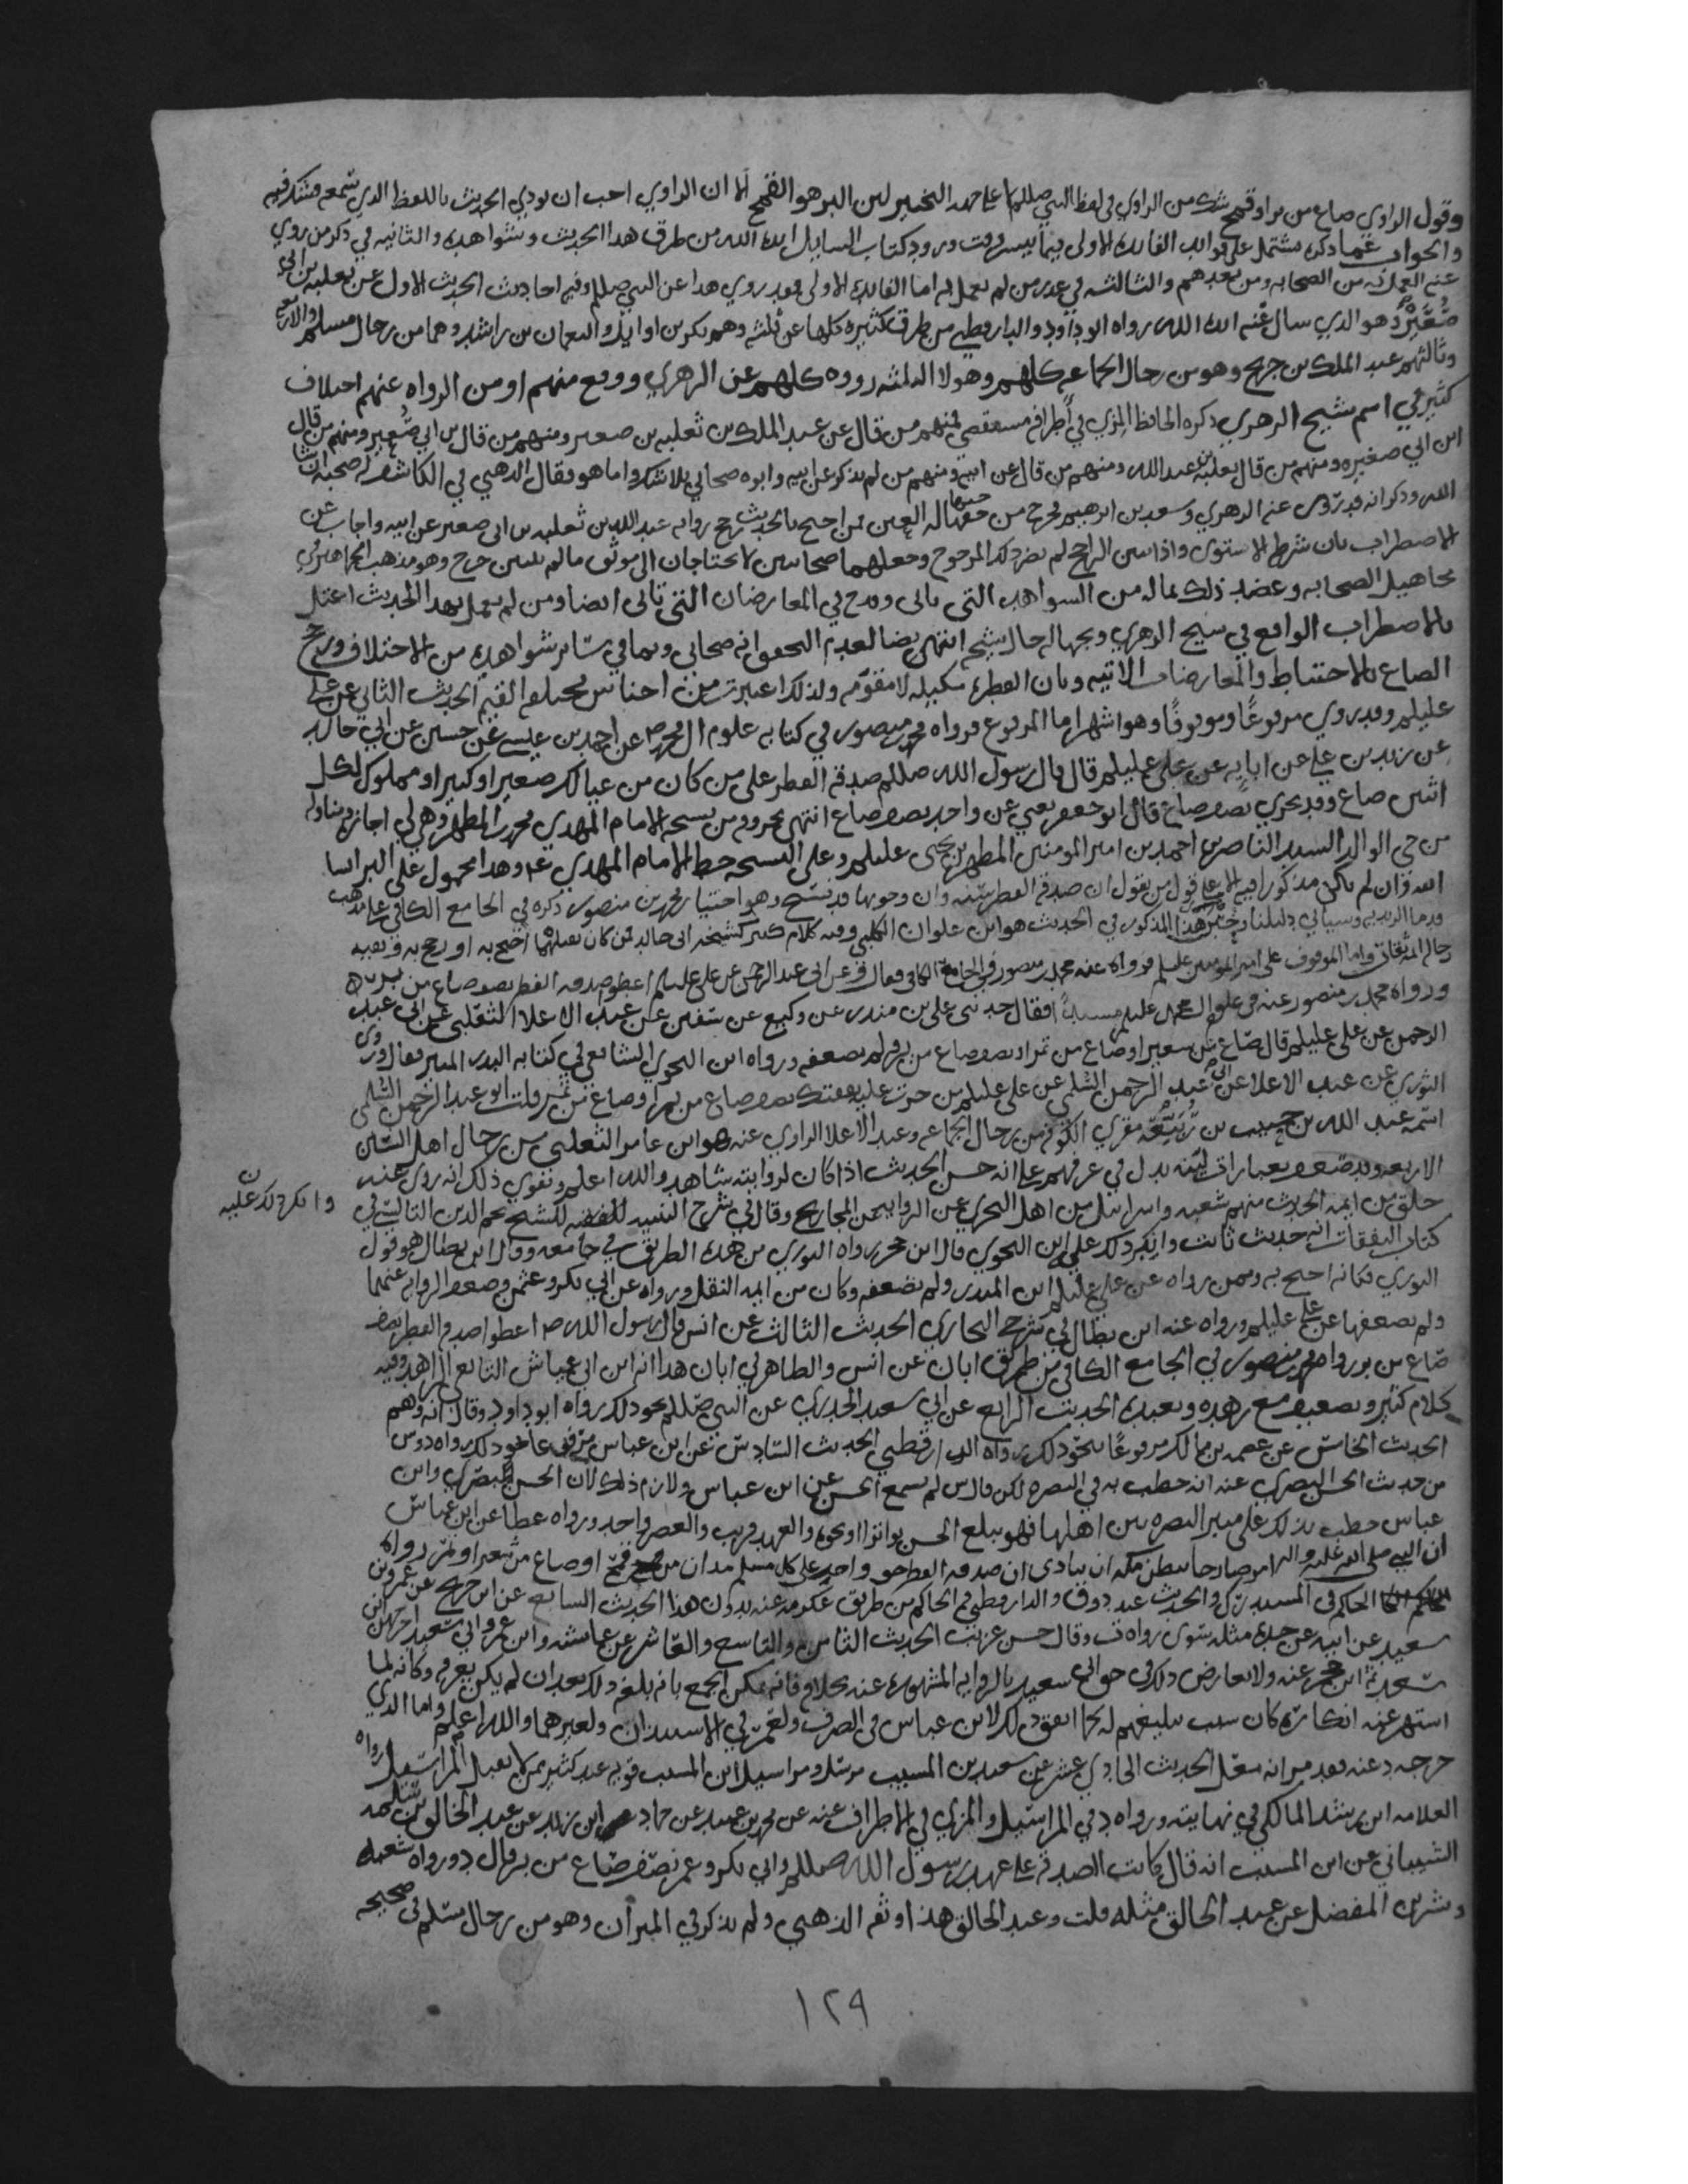 وقول الراوي صاع من بر او قمح شك من الراوي في لفظ النبي صللم لا على جهة التخيير لان البر هو القمح الا ان الراوي احب ان يودي الحديث باللفظ الذي سمعه فشك فيه
والجواب عما ذكره مشتمل على فوائد الفائدة الاولى فيما ورود كتاب السايل ايده الله من طرق هذا الحديث وشواهده والثانيه في ذكر من روي
عنه العمل به من الصحابه ومن بعدهم والثالثه في عذر من لم يعمل به اما الفايده الاولى فقد روي هذا عن النبي صللم وفيه احاديث الحديث الاول عن ثعلبه بن ابي
صُعَيْر وهو الذي سال عنه ايده الله رواه ابو داود والدارقطني من طرق كثيره كلها عن ثلثه وهم بكر بن وايل والنعمان بن راشد وهما من رجال مسلم والاربعه
وثالثهم عبد الملك بن جريج وهو من رجال الجماعه كلهم وهولا الثلثه رووه كلهم عن الزهري ووقع منهم او من الرواه عنهم اختلاف
كثير في اسم شيخ الزهري ذكره الحافظ المزي في أطرافه فمنهم من قال عن عبد الملك بن ثعلبه بن صعير ومنهم من قال بن ابي صُعير ومنهم من قال
ابن ابي صغيره ومنهم من قال ثعلبه بن عبد الله ومنهم من قال عن ابيه ومنهم من لم يذكر عن ابيه وابوه صحابي بلا شك واما هو فقال الذهبي في الكاشف له صحبه ان شا
الله وذكر انه قد روى عنه الزهري وسعد بن ابرهيم من احتج بالحديث رجح روايه عبد الله بن ثعلبه بن ابي صعير عن ابيه واجاب عن
الاضطراب بان شرطه الاستوى واذا تبين الراجح لم يضر ذلك المرجوح وجعلهما صحابيين لا يحتاجان الى موثق ما لم يتبين جرح وهو مذهب الجماهير في
مجاهيل الصحابه وعضد ذلك بما له من الشواهد التي تاتي وقدح في المعارضات التي تاتي ايضا ومن لم يعمل بهذا الحديث اعتل
بالاضطراب الواقع في شيخ الزهري وبجهالة حال شيخه ايضا لعدم التحقق انه صحابي وبما في سائر شواهده من الاختلاف ورجح
الصاع بالاحتياط والمعارضات الاتيه وبان الفطره مكيله لا مقوّمه ولذلك اعتبرت من اجناس مختلفه القيم الحديث الثاني عن علي
عليلم وقد روي مرفوعًا وموقوفًا وهو اشهر اما المرفوع فرواه محمد بن منصور في كتابه علوم ال محمد عن احمد بن عيسى عن حسين عن ابي خالد
عن زيد بن علي عن ابايه عن علي عليلم قال قال رسول الله صللم صدقه الفطر على من كان من عيالك صغير او كبير او مملوك لكل
اثنين صاع وقد يجزي نصف صاع قال ابو جعفر يعني عن واحد نصف صاع انتهى بحروفه من نسخه الامام المهدي محمد بن المطهر وهي لي اجازه ومناوله
من حي الوالد السيد الناصر بن احمد بن امير المومنين المطهر بن يحيى عليلم وعلى النسخه خط الامام المهدي ع وهذا محمول على البر
الله وان لم يكن مذكورا فيه الا على قول من يقول ان صدقه الفطر سنه وان وجوبها قد نسخ وهو اختيار محمد بن منصور ذكره في الجامع الكافي على مذهب
قدما الزيديه وسياتي دليلنا هذا المذكور في الحديث هو ابن علوان الكلبي وفيه كلام كثير كشيخه ابي خالد فمن كان يقبلهما احتج به او رجح به وبقيه
رجاله ثقات واما الموقوف على امير المومنين عليلم فرواه عنه محمد بن منصور في الجامع الكافي فقال وعن ابي عبد الرحمن عن علي عليلم اعطوا صدقه الفطر نصف صاع من بر
ورواه محمد بن منصور عنه في علوم ال محمد عليلم مسندًا فقال حدثني علي بن منذر عن وكيع عن سفين عن عبد الاعلا الثعلبي عن ابي عبد
الرحمن عن علي عليلم قال صاع من شعير او صاع من تمر او نصف صاع من بر ولم يضعفه ورواه ابن النحوي الشافعي في كتابه البدر المنير فقال وروى
الثوري عن عبد الاعلا عن ابي عبد الرحمن السُّلمي عن علي عليلم من جرت عليه نفقتك نصف صاع من بر او صاع من تمر قلت ابو عبد الرحمن السلمي
اسمه عبد الله بن حبيب بن رُبَيِّعه مقري الكوفه من رجال الجماعه وعبد الاعلا الراوي عنه هو ابن عامر الثعلبي من رجال اهل السنن
الاربعه وقد ضعف بعبارات ليّنه تدل في عرفهم على انه حسن الحديث اذا كان لروايته شاهد والله اعلم ويقوي ذلك انه روى عنه
خلق من ايمه الحديث منهم شعبه واسرائيل من اهل التحري عن الروايه عن المجاريح وقال في شرح التنبيه للشيخ نجم الدين البالسي في
وانكر ذلك عليه
كتاب النفقات انه حديث ثابت وانكر ذلك عليه ابن النحوي قال ابن حجر رواه الثوري من هذه الطريق في جامعه وقال ابن بطال هو قول
الثوري فكانه احتج به وممن رواه عن علي عليلم ابن المنذر ولم يضعفه وكان من ايمه النقل ورواه عن ابي بكر وعثمن وضعف الروايه عنهما
ولم يضعفها عن علي عليلم ورواه عنه ابن بطال في شرح البخاري الحديث الثالث عن انس قال رسول الله ص اعطوا صدقه الفطر نصف
صاع من بر رواه محمد بن منصور في الجامع الكافي من طريق ابان عن انس والظاهر في ابان هذا انه ابن ابي عياش التابعي الزاهد وفيه
كلام كثير وتضعيف مع زهده وتعبده الحديث الرابع عن ابي سعيد الخدري عن النبي صللم نحو ذلك رواه ابو داود وقال انه وهم
الحديث الخامس عن عصمه بن مالك مرفوعًا نحو ذلك رواه الدارقطني الحديث السادس عن ابن عباس مرفوعا نحو ذلك رواه دوس
من حديث الحسن البصري عنه انه خطب به في البصره لكن قال س لم يسمع الحسن من ابن عباس ولا زم ذلك لان الحسن البصري وابن
عباس خطب بذلك على منبر البصره بين اهلها فهو يبلغ الحسن تواترا او نحوه والعهد قريب والعصر واحد ورواه عطا عن ابن عباس
ان النبي صلى الله عليه واله امر صارخا ببطن مكه ان ينادي ان صدقه الفطر حق واجب على كل مسلم مدان من قمح او صاع من شعير او تمر رواه
الحاكم في المستدرك والحديث عند دوق والدارقطني والحاكم من طريق عكرمه عنه بدون هذا الحديث السابع عن ابن جريج عن عمرو بن
سعيد عن ابيه عن جده مثله سوى رواه ت وقال حسن غريب الحديث الثامن والتاسع والعاشر عن عايشه وابن عمر وابي سعيد اخرجهن ابن
ابن حجر عنه ولا يعارض ذلك في حق ابي سعيد بالروايه المشهوره عنه بخلافه فانه يمكن الجمع بانه بلغه ذلك بعد ان لم يكن يعرفه وكانه لما
اشتهر عنه انكاره كان سبب تبليغهم له كما اتفق ذلك لابن عباس في الصرف ولعمر في الاستيذان ولغيرهما والله اعلم واما الذي
خرجه د عنه فقد مر انه معل الحديث الحادي عشر عن سعيد بن المسيب مرسلا ومراسيل ابن المسيب قويه عند كثير ممن لا يقبل المراسيل رواه
العلامه ابن رشد المالكي في نهايته ورواه د في المراسيل والمزي في الاطراف عنه عن محمد بن عبيد عن حماد ابن زيد عن عبد الخالق بن سلمه
الشيباني عن ابن المسيب انه قال كانت الصدقه على عهد رسول الله صللم وابي بكر وعمر نصف صاع من بر قال د ورواه شعبه
وبشر بن المفضل عن عبد الخالق مثله قلت وعبد الخالق هذا وثقه الذهبي ولم يذكر في الميزان وهو من رجال مسلم في صحيحه
١٢٩